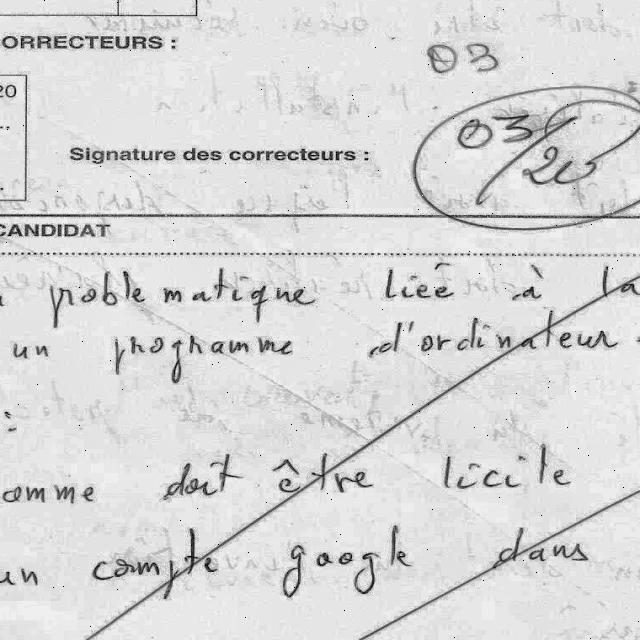 ORRECTEURS :
03
20
03/20
Signature des correcteurs :
CANDIDAT
problematique liée à la
un programme d'ordinateur.
:
amme doit être licite
un compte google dans